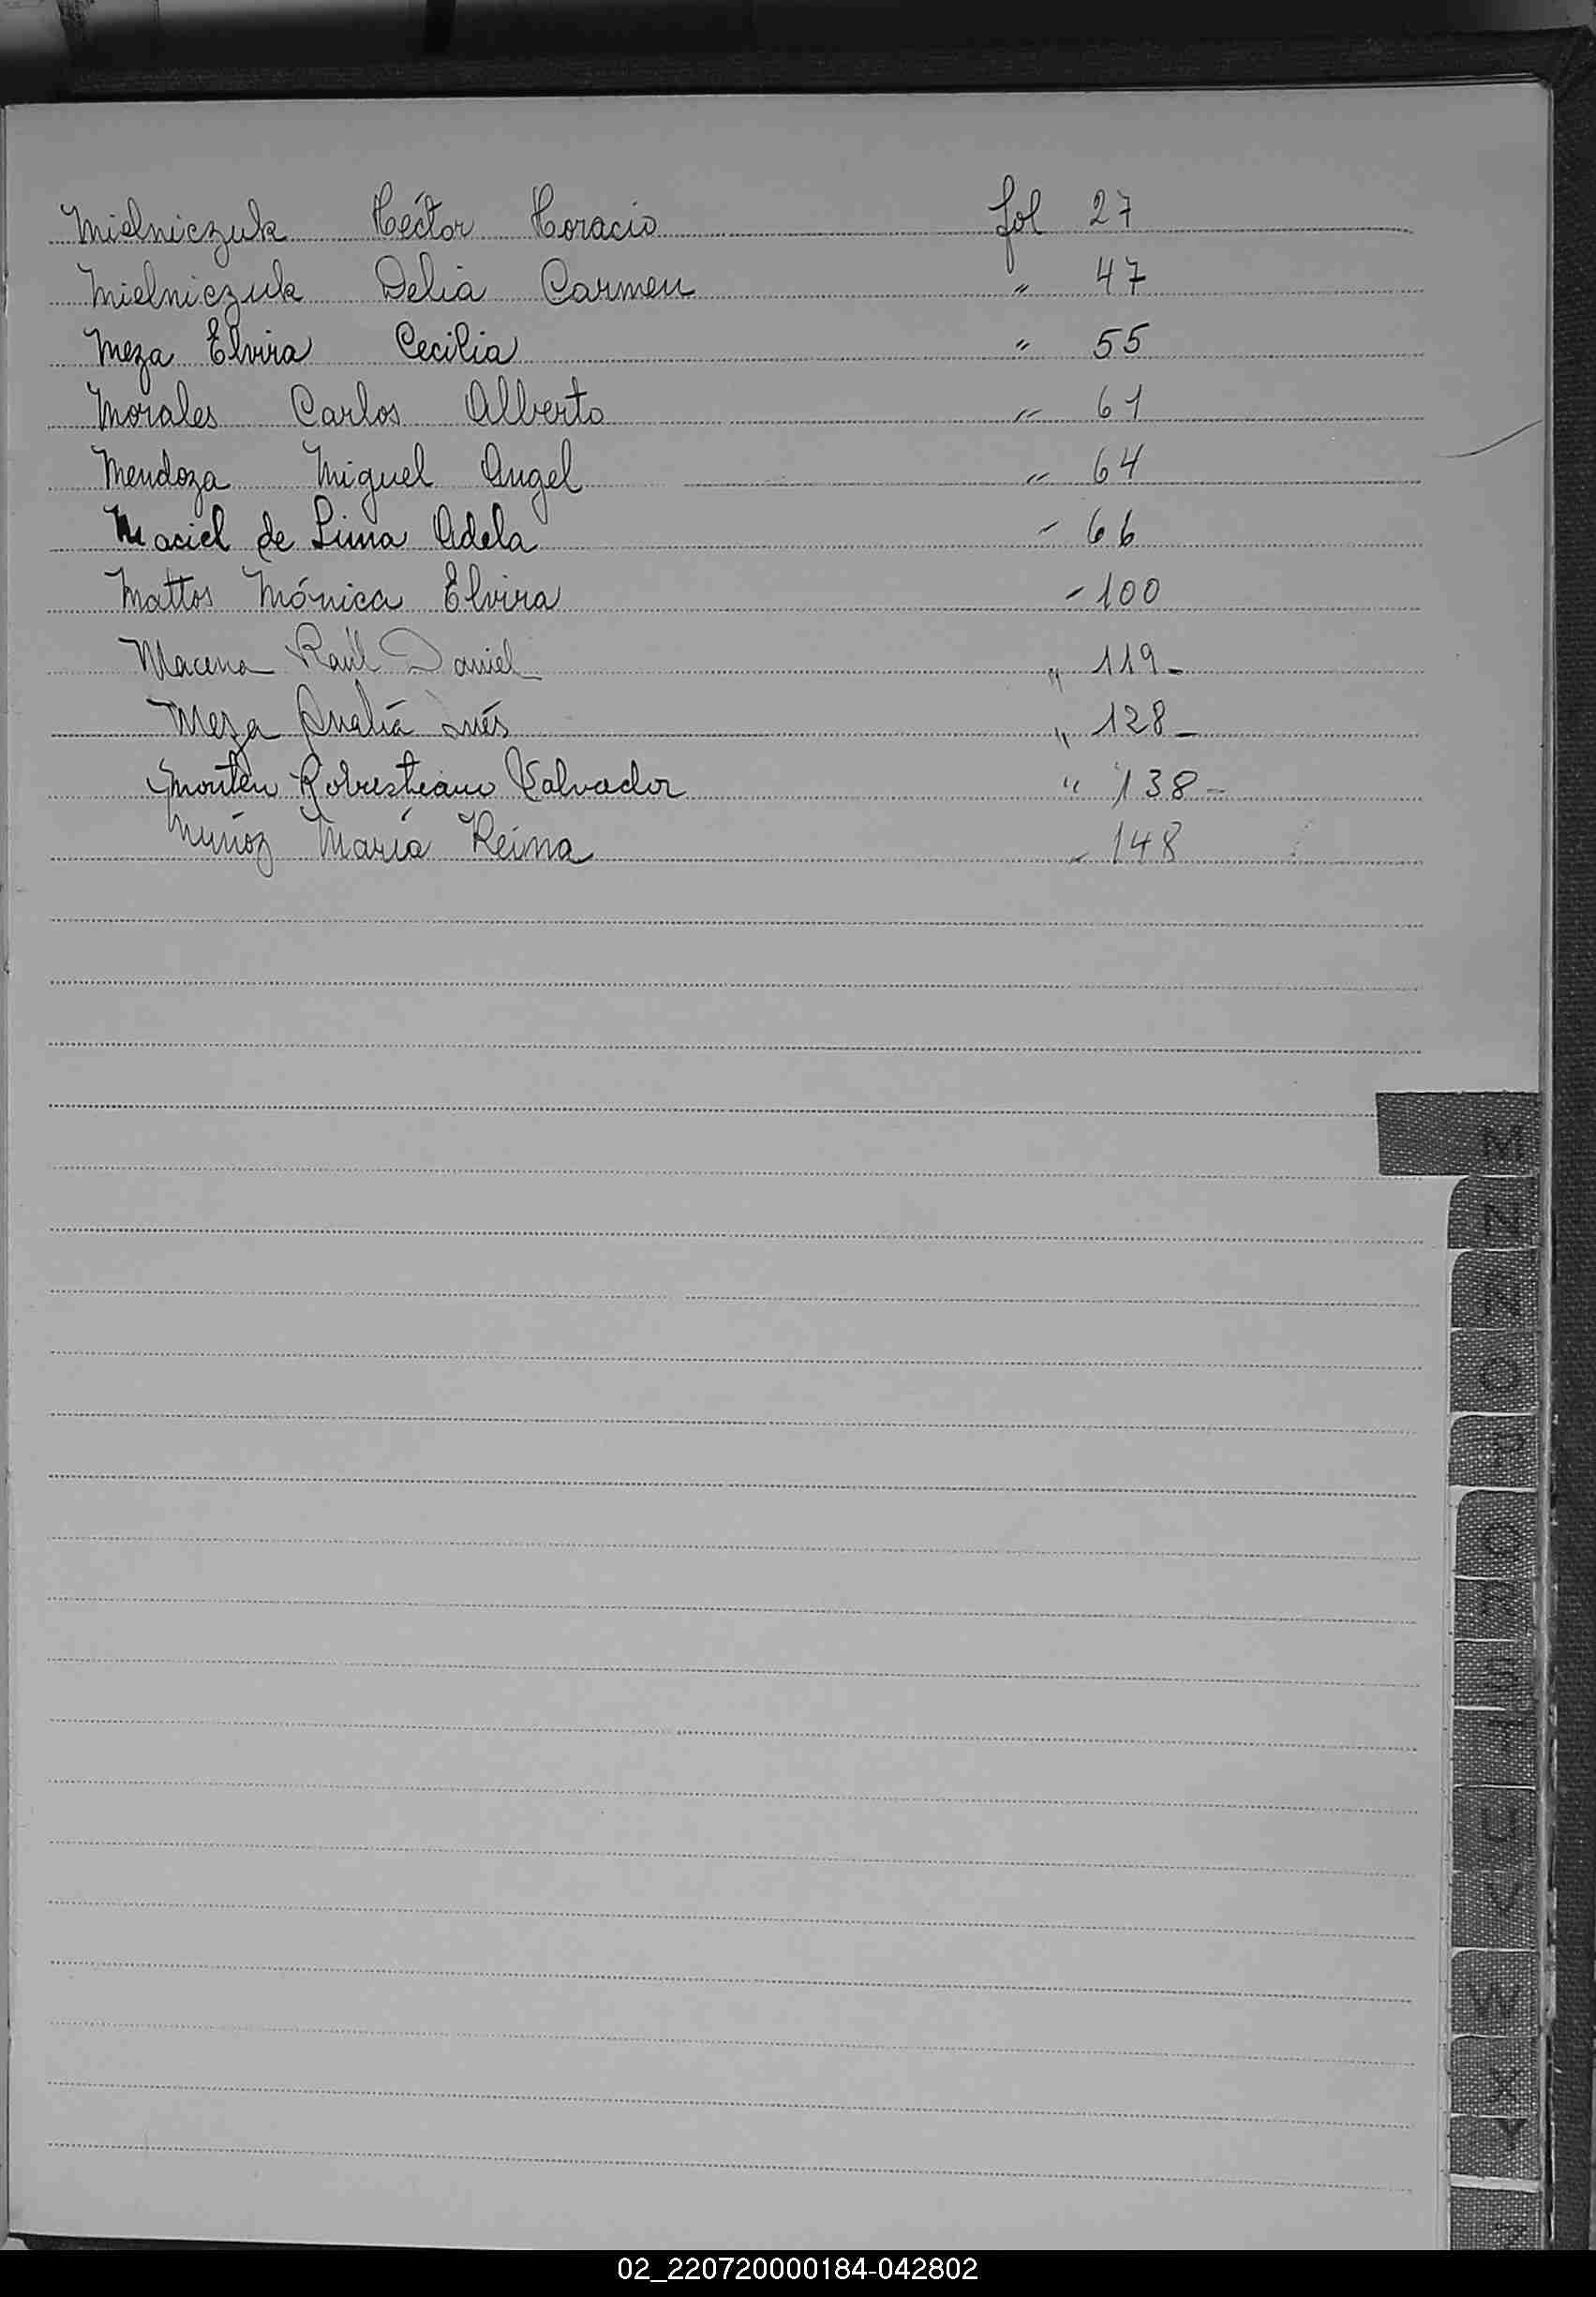 Mielniczuk Héctor Horacio fol 27
Mielniczuk Delia Carmen " 47
Meza Elvira Cecilia " 55
Morales Carlos Alberto " 61
Mendoza Miguel Angel " 64
Maciel de Lima Adela - 66
Mattos Mónica Elvira - 100
Macena Raúl Daniel " 119-
Meza Analía Inés " 128-
Salvador " 138-
Muñoz María Reina - 148
M
N
Ñ
O
P
Q
R
S
T
U
V
W
X
Y
Z
02_220720000184-042802